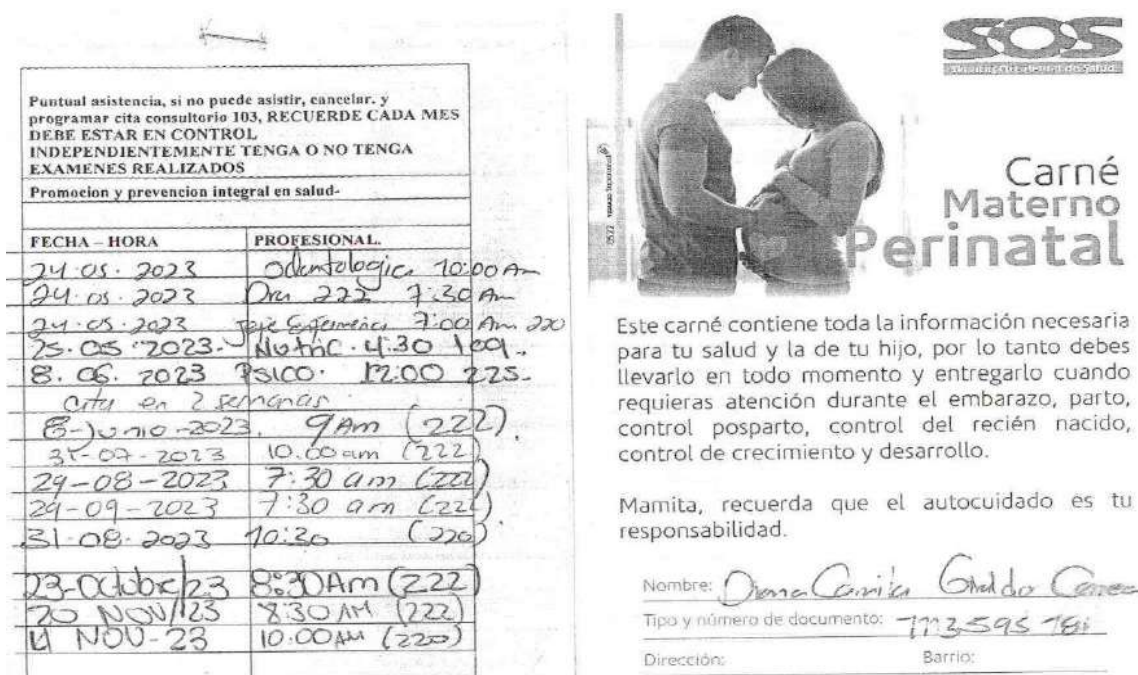 Puntual asistencia, si no puede asistir, cancelar. y
programar cita consultorio 103, RECUERDE CADA MES
DEBE ESTAR EN CONTROL
INDEPENDIENTEMENTE TENGA O NO TENGA
EXAMENES REALIZADOS
Promocion y prevencion integral en salud-
FECHA – HORA PROFESIONAL.
24.05.2023 Odontologica 10:00 Am
24.05.2023 Dra 222 7:30 Am
24.05.2023 Jefe Enfermeria 7:00 Am 220
25.05.2023. Nutric. 4:30 109.
8.06.2023 PSICO. 12:00 225.
cita en 2 semanas
8-Junio-2023. 9Am (222).
31-07-2023 10:00am (222)
29-08-2023 7:30 am (222)
29-09-2023 7:30 am (222)
31-08-2023 10:30 (220)
23-Octubre/23 8:30Am (222)
20 NOV/23 830 AM (222)
NOV-23 10:00AM (220)
SOS
Carné
Materno
Perinatal
Este carné contiene toda la información necesaria
para tu salud y la de tu hijo, por lo tanto debes
llevarlo en todo momento y entregarlo cuando
requieras atención durante el embarazo, parto,
control posparto, control del recién nacido,
control de crecimiento y desarrollo.
Mamita, recuerda que el autocuidado es tu
responsabilidad.
Nombre: Diana Camila Giraldo
Tipo y número de documento:
Dirección: Barrio: